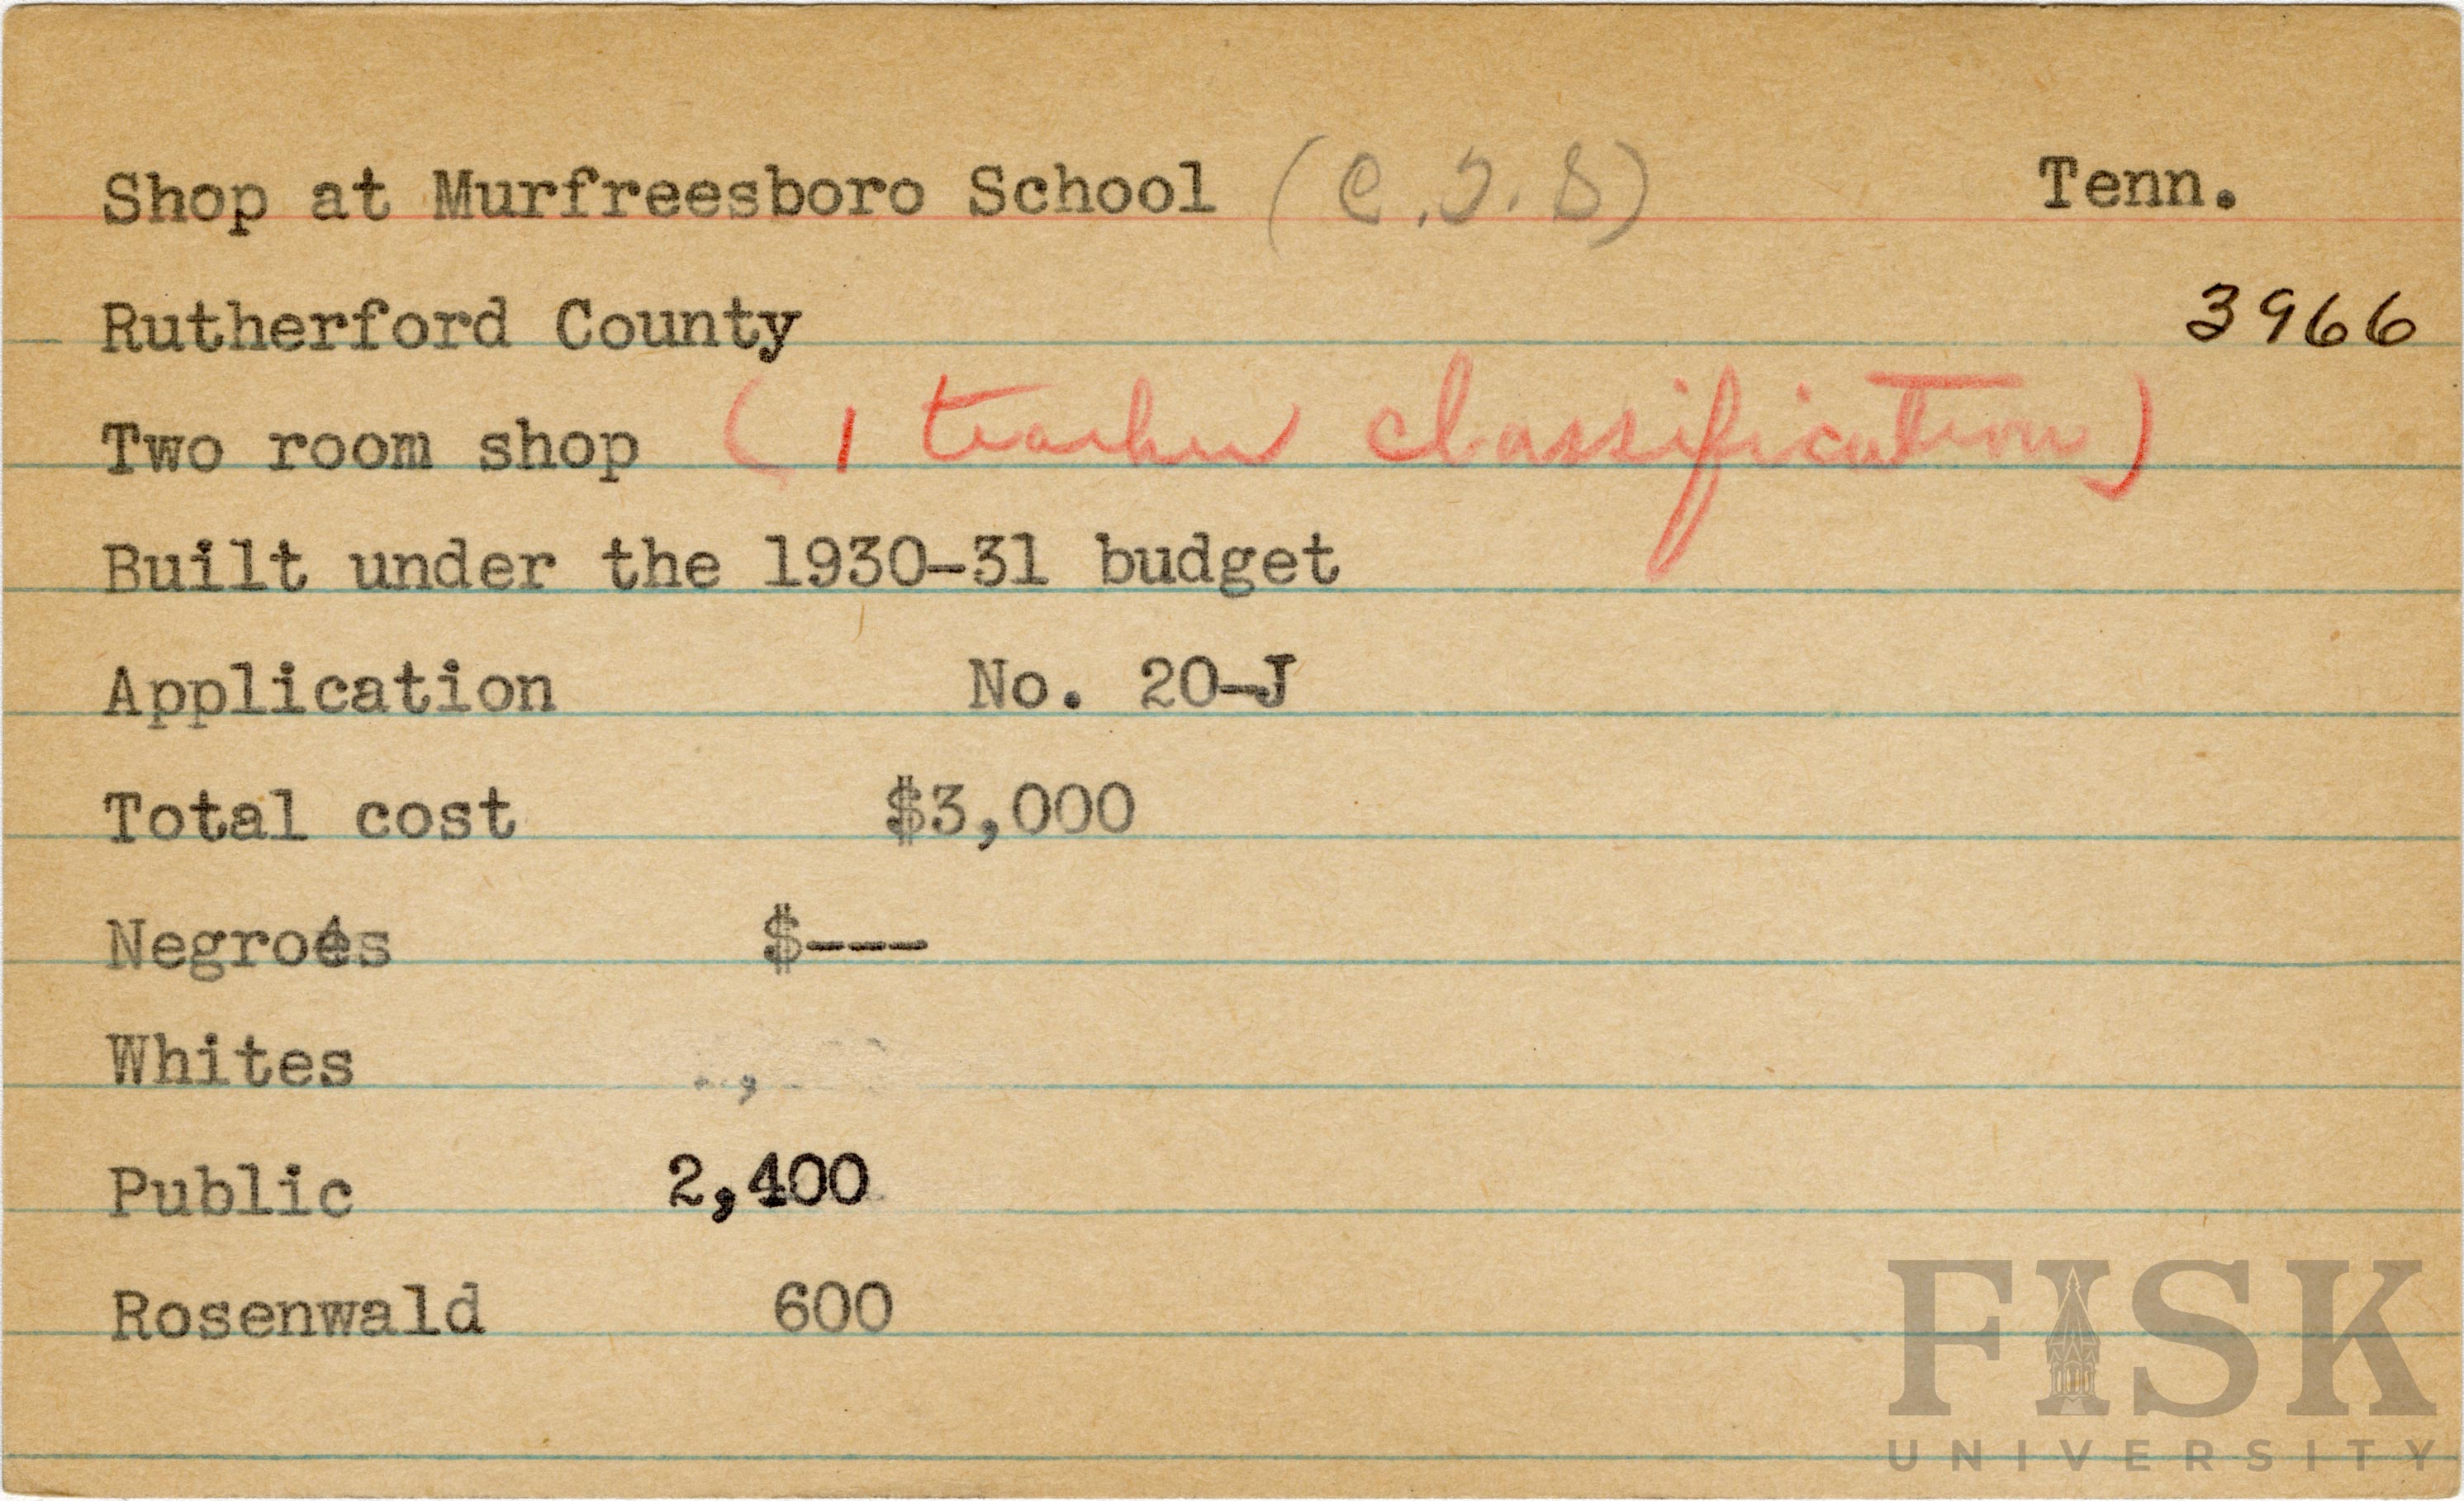 Shop at Murfreesboro School (C.T.S) Tenn.
Rutherford County 3966
Two room shop (1 teacher classification)
Built under the 1930-31 budget
Application No. 20-J
Total cost $3,000
Negroes $---
Whites
Public 2,400
Rosenwald 600
FISK
UNIVERSITY